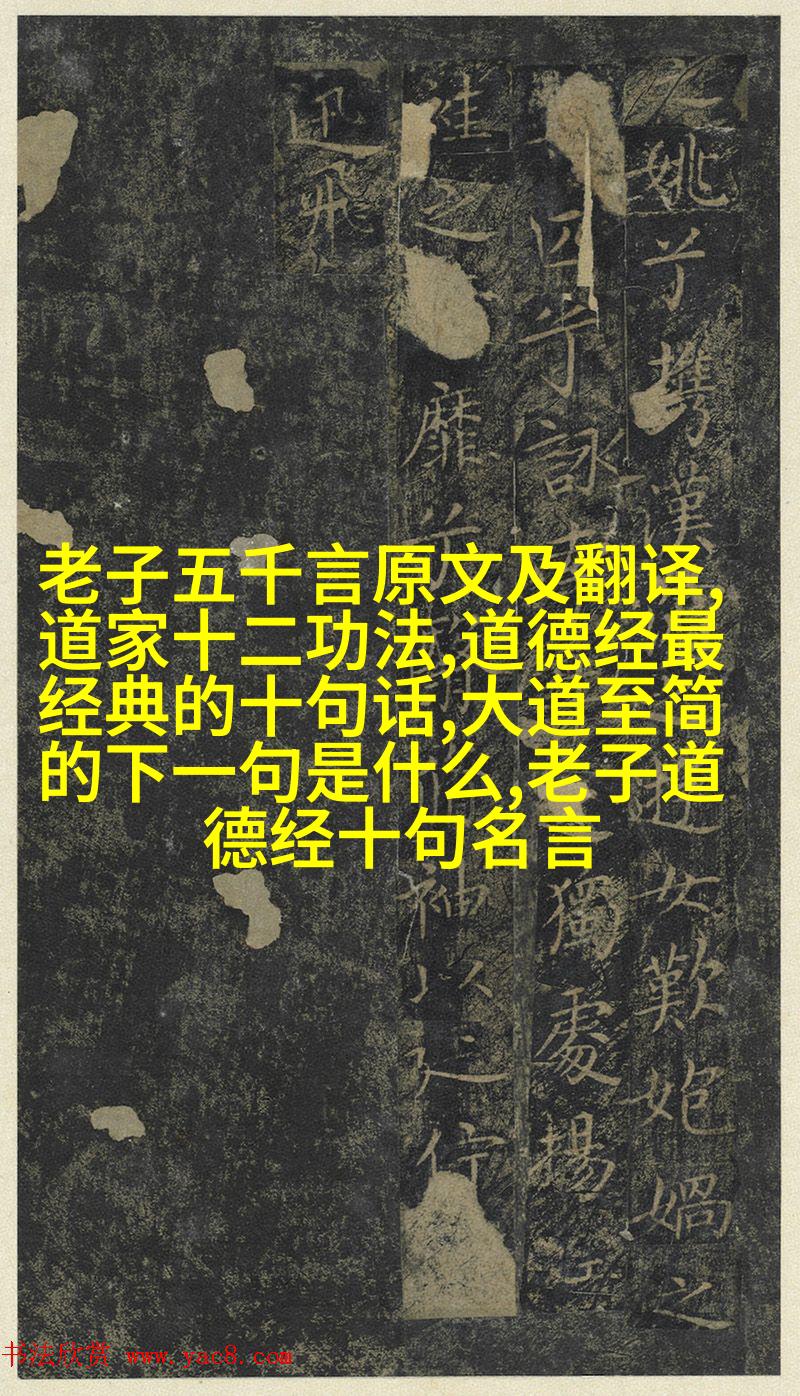 老子五千言原文及翻译,
道家十二功法,道德经最
经典的十句话,大道至简
的下一句是什么,老子道
德经十句名言
姚兮攜漢遊女歎媧之
匹兮詠獨處揚
袿之靡兮袖以延佇
迅飛
书法欣赏 www.yac8.com